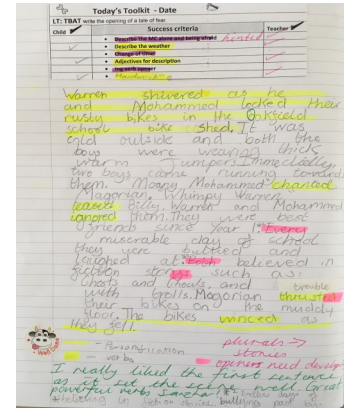 Today's Toolkit - Date
LT: TBAT write the opening of a tale of fear.
Child Success criteria Teacher
Describe the MC alone and being afraid hinted
Describe the weather
Change of time
Adjectives for description
ing verb opener
Warren shivered as he
and Mohammed locked their
rusty bikes in the Oakfield
school bike shed. It was
cold outside and both the
boys were wearing thick
warm jumpers. Immediatley,
two boys came running towards
them. Moany Mohammed chanted
Magorian. Whimpy Warren
teased Billy. Warren and Mohammed
ignored them. They were best
friends since Year 1. Every
miserable day of school
they were and
laughed at. believed in
fiction such as:
Ghosts and Ghouls, and trouble
with trolls. Magorian thrusted
their bikes on the muddy
floor. The bikes winced as
they fell.
- Personification plurals →
- verbs stories
openers need develop
I really liked the first sentence
as it set the scene well. Great
powerful verbs